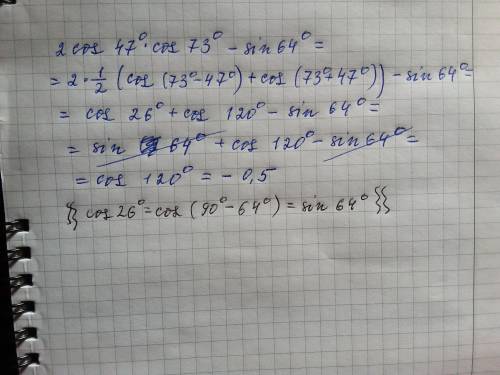 2cos 47°·cos 73° - sin 64° =
= 2·1/2 (cos (73°-47°) + cos (73°+47°)) - sin 64° =
= cos 26° + cos 120° - sin 64° =
= sin 64° + cos 120° - sin 64° =
= cos 120° = - 0,5
{{ cos 26° = cos (90° - 64°) = sin 64° }}